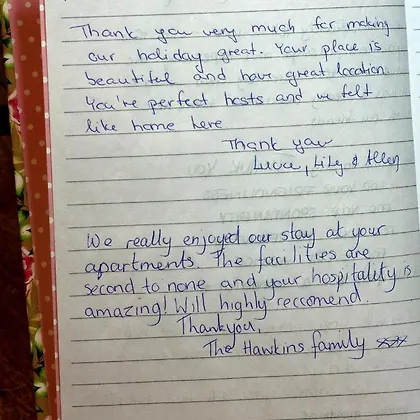 Thank you very much for making
our holiday great. Your place is
beautiful and have great location
You're perfect hosts and we felt
like home here
Thank you
Lucie, Lily & Allen
We really enjoyed our stay at your
apartments. The facilities are
second to none and your hospitality is
amazing! Will highly reccomend.
Thankyou,
The Hawkins family